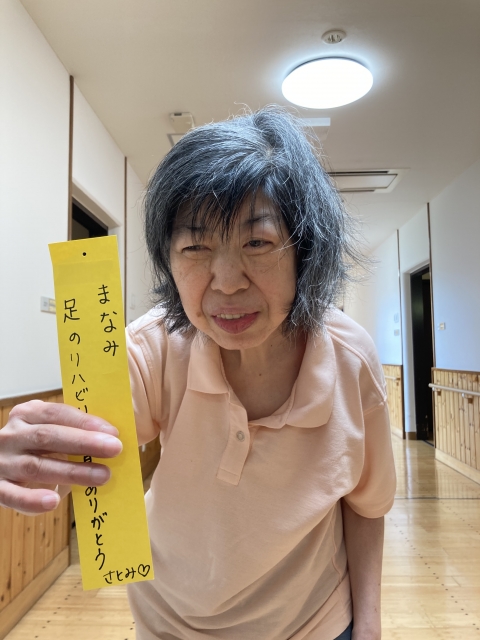 まなみ
足のリハビリ ありがとう
さとみ♡